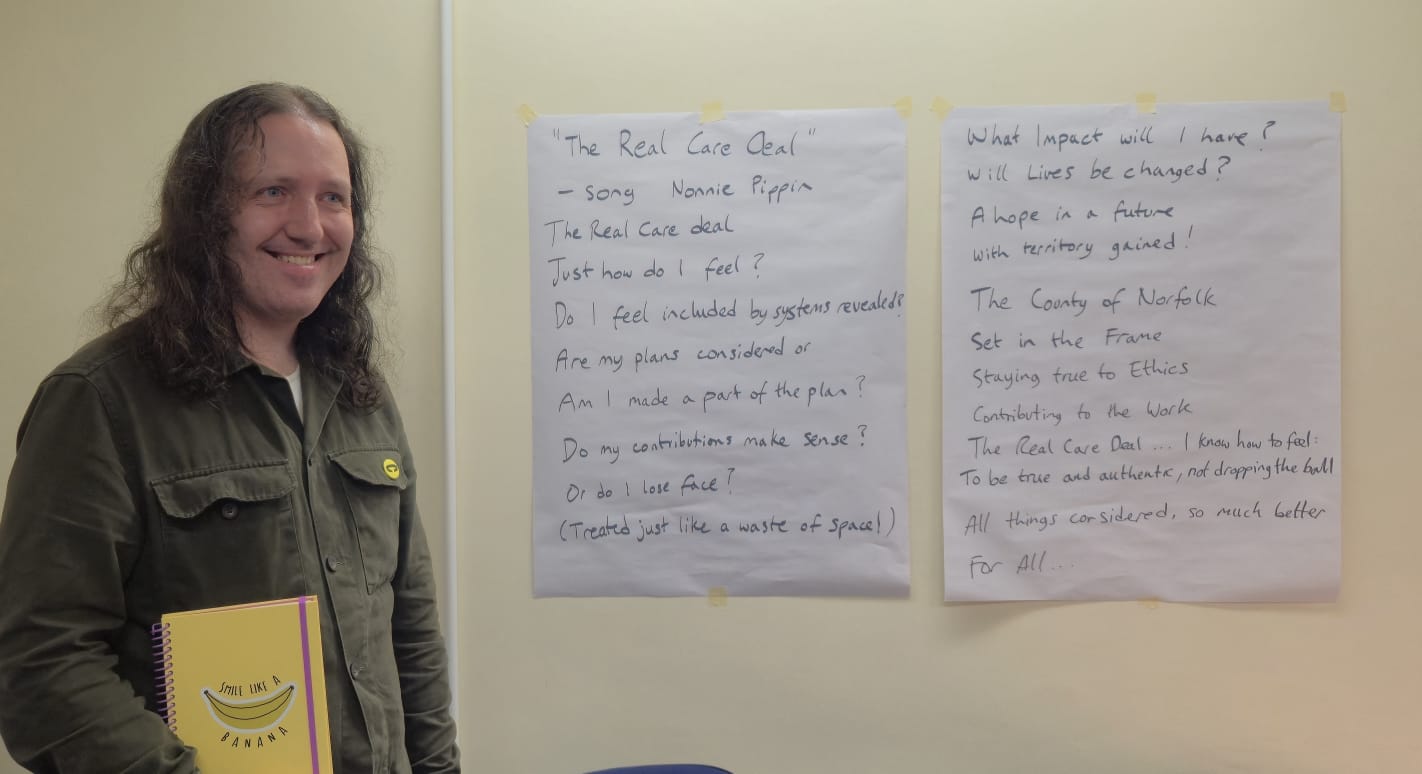 "The Real Care Deal"
– song Nonnie Pippin
The Real Care deal
Just how do I feel?
Do I feel included by systems revealed?
Are my plans considered or
Am I made a part of the plan?
Do my contributions make sense?
Or do I lose face?
(Treated just like a waste of space!)
What Impact will I have?
Will Lives be changed?
A hope in a future
with territory gained!
The County of Norfolk
Set in the Frame
Staying true to Ethics
Contributing to the Work
The Real Care Deal ... I know how to feel:
To be true and authentic, not dropping the ball
All things considered, so much better
For All...
SMILE LIKE A
BANANA